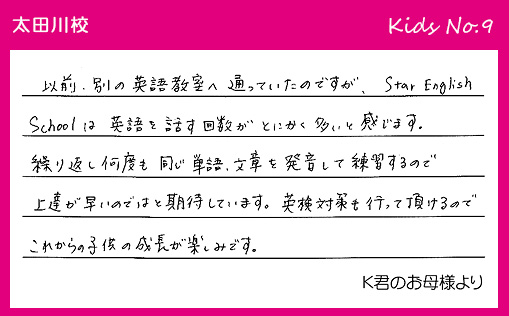 太田川校
Kids No.9
以前、別の英語教室へ通っていたのですが、Star English
Schoolは英語を話す回数がとにかく多いと感じます。
繰り返し何度も同じ単語、文章を発音して練習するので
上達が早いのではと期待しています。英検対策も行って頂けるので
これからの子供の成長が楽しみです。
K君のお母様より